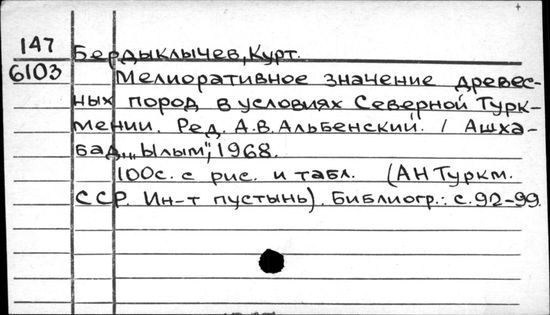 147
6103
Бердыклычев, Курт.
Мелиоративное значение древес-
ных пород в условиях Северной Турк-
мении. Ред. А.В. Альбенский. / Ашха-
бад, „Ылым", 1968.
100с. с рис. и табл. (АН Туркм.
ССР. Ин-т пустынь). Библиогр.: с. 92-99.